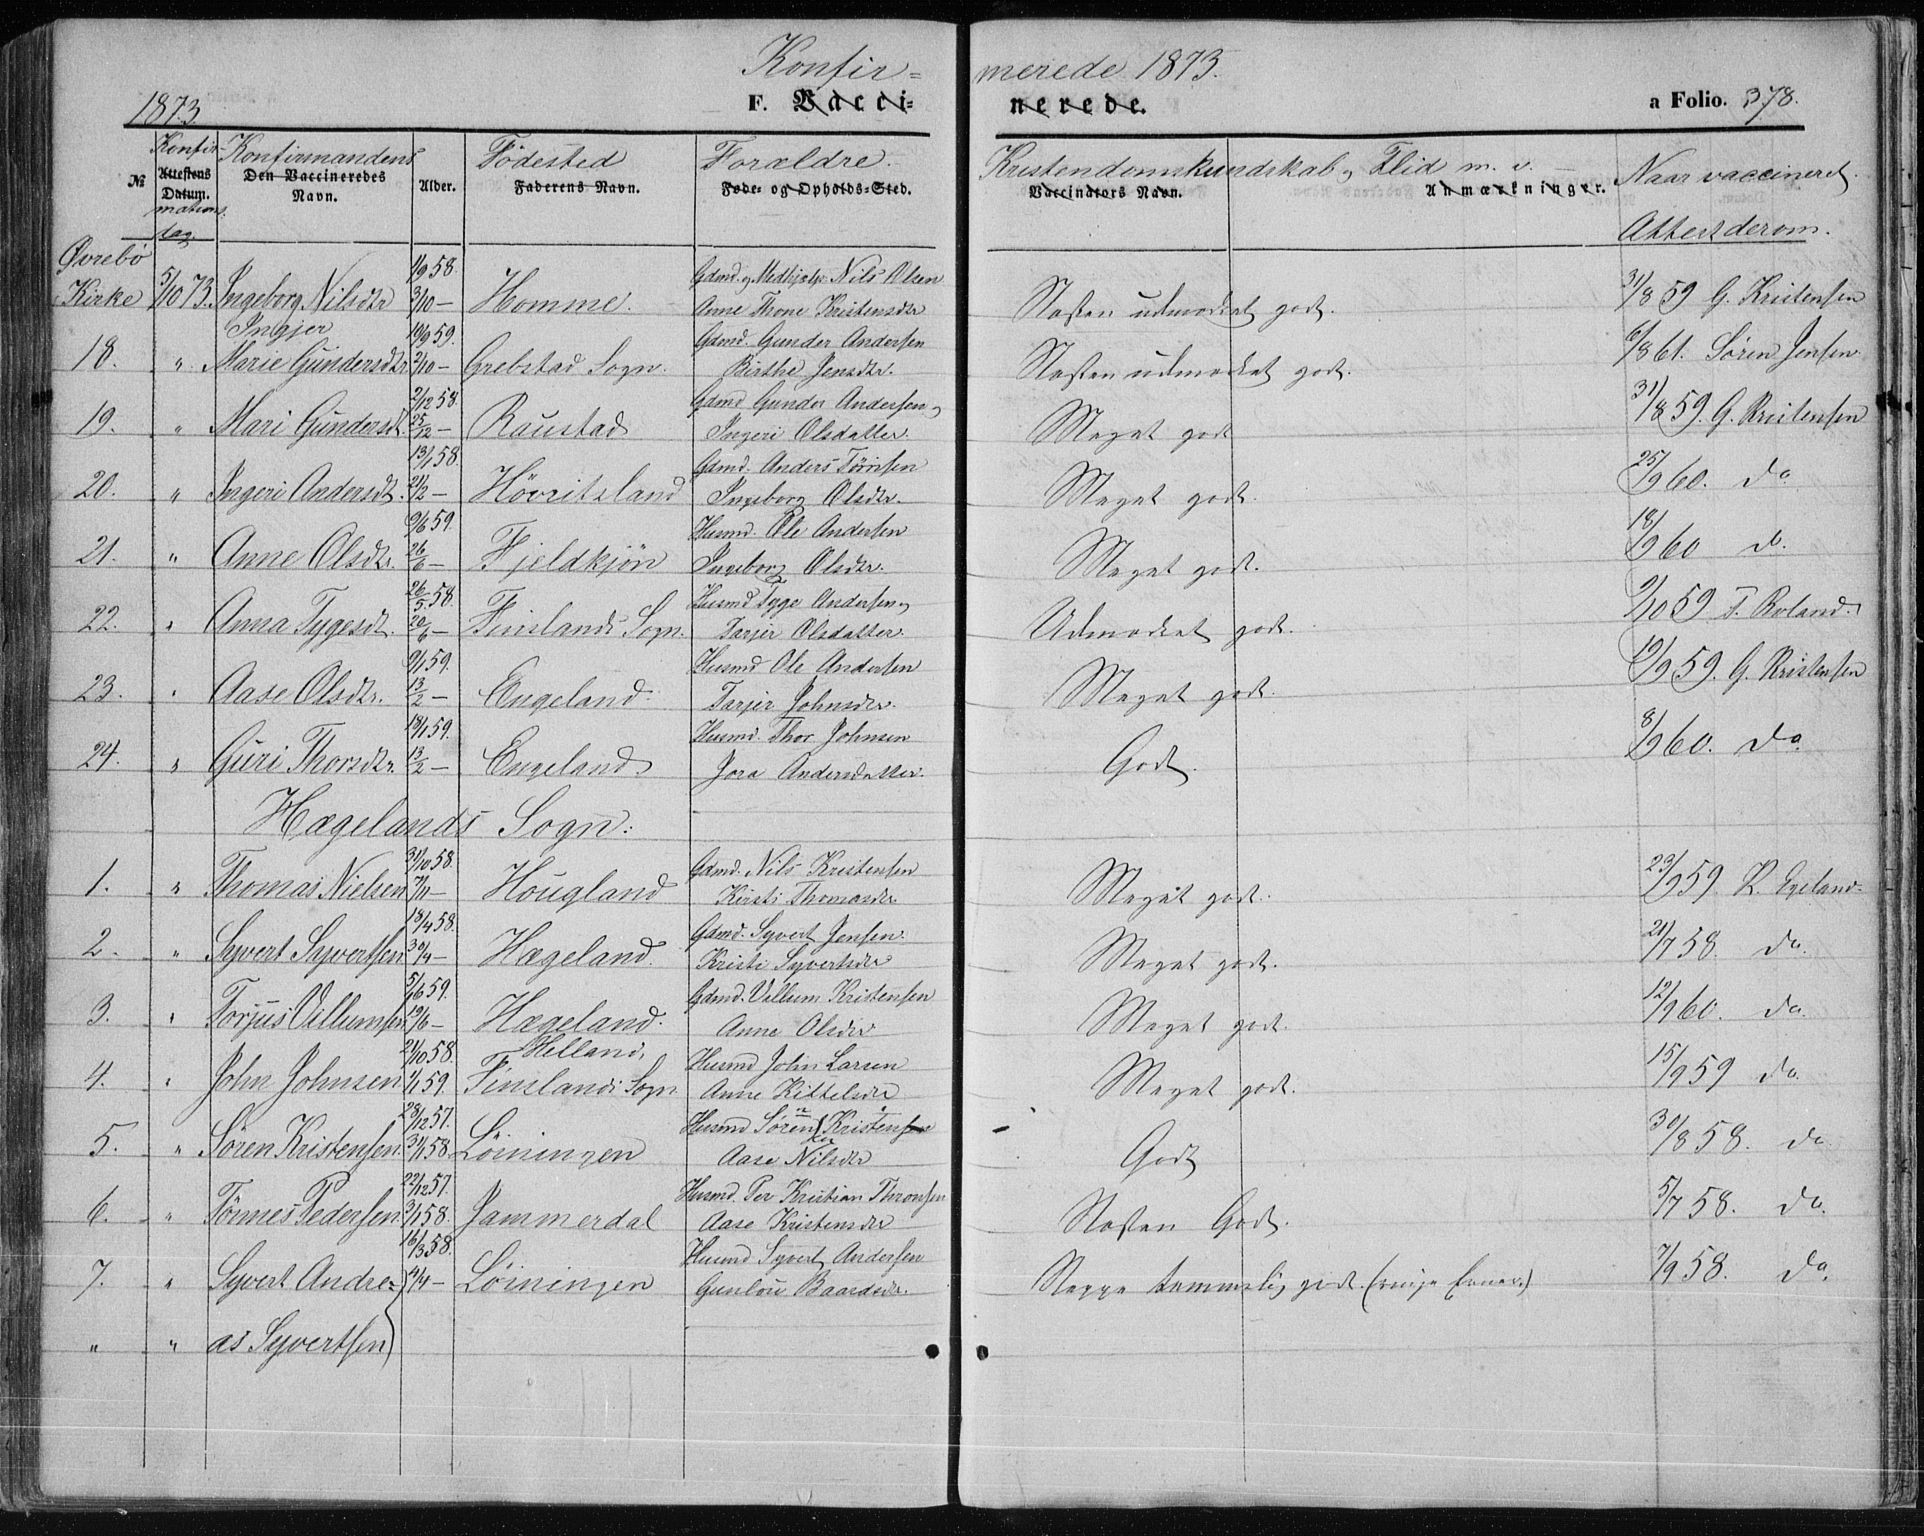 Konfir= merede 1873.
1873.
F. Vacci= nerede.
a Folio. 378.
No
Konfir-
Attestens
Datum.
mations
dag.
Konfirmandens
Den Vaccineredes
Navn.
Alder.
Födested
Faderens Navn.
Forældre.
Føde- og Opholds-Sted.
Kristendomskundskab, Flid m. v.
Vaccinators Navn.
Anmærkninger.
Naar vaccineret.
Attest derom.
Øvrebö
1/9 58. Gdmd. og Medhjelp. Nils Olsen
Kirke 5/10 73. Ingeborg Nilsdtr 3/10 — Homme. Anne Thone Kristensdtr Næsten udmærket godt. 31/8 59 G. Kristensen
Ingjer 19/9 59. Gdmd. Gunder Andersen
18. " Marie Gundersdtr. 2/10 — Grebstad Sogn. Birthe Jensdtr. Næsten udmærket godt. 6/8 61. Sören Jensen.
2/12 58. Gdmd Gunder Andersen,
19. " Mari Gundersdt. 25/12 — Raustad Ingeri Olsdatter. Meget godt 31/8 59. G. Kristensen
13/1 58. Gdmd. Anders Törrisen
20. " Ingeri Andersdt. 21/2 — Hövritsland Ingeborg Olsdtr. Meget godt. 25/9 60. do
9/6 59. Husmd. Ole Andersen
21. " Anne Olsdtr. 26/6 — Fjeldkjön Ingeborg Olsdtr. Meget godt. 18/9 60 do.
26/5 58. Husmd Tyge Andersen,
22. " Anna Tygesdt. 20/6 — Finslands Sogn. Tarjer Olsdatter. Udmærket godt. 9/10 59 T. Roland.
9/1 59. Husmd Ole Andersen
23. " Aase Olsdtr. 13/2 — Engeland. Tarjer Johnsdtr. Meget godt. 19/9 59. G. Kristensen
18/1 59. Husmd. Thor Johnsen
24. " Guri Thorsdtr. 13/2 — Engeland Jora Andersdatter. Godt. 8/9 60. do
Hægelands Sogn:
31/10 58. Gdmd. Nils Kristensen
1. " Thomas Nielsen 7/11 — Hougland Kirsti Thomasdtr Meget godt. 23/9 59. K. Egeland
18/4 58. Gdmd. Syvert Jensen.
2. " Syvert Syvertsen 30/4 — Hægeland. Kristi Syvertsdtr Meget godt. 21/7 58. do.
5/6 59. Gdmd. Villum Kristensen
3. " Torjus Villumsen 19/6 — Hægeland. Anne Olsdtr Meget godt. 12/9 60. do.
21/10 58. Helland, Husmd John Larsen
4. " John Johnsen 1/1 59. Finslands Sogn Anne Kittelsdtr Meget godt. 15/9 59 do.
28/12 57. Husmd Sören Kristensen
5. " Sören Kristensen 31/1 58. Löiningen Aase Nilsdtr Godt 30/8 58. do
22/12 57. Husmd. Per Kristian Thronsen
6. " Tönnes Pedersen 3/1 58. Jammerdal Aase Kristensdtr Næsten Godt. 5/7 58. do.
16/3 58. Husmd Syvert Andersen
7. " Syvert Andre- 4/4 — Löiningen Gunlou Baardsdtr. Neppe temmelig godt. 7/9 58. do.
" " as Syvertsen